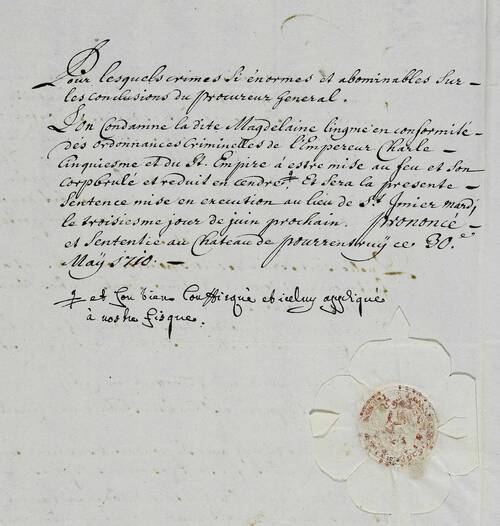 Pour lesquels crimes si énormes et abominables Sur
les conclusions du Procureur General.
L'on Condamne la dite Magdelaine Lingme en conformité
des ordonnances Criminelles de l'Empereur Charle
Cinquiesme et du St. Empire à estre mise au feu et Son
Corp brulé et reduit en cendre ‡. Et Sera la presente
Sentence mise en execution au lieu de St. Imier mardi
le troisiesme jour de juin prochain. Prononcé
et Sentencié au Chateau de Pourrentruy ce 30.e
Maÿ 1710.
‡ et Son bien Confisqué et iceluy appliqué
à nostre fisque.